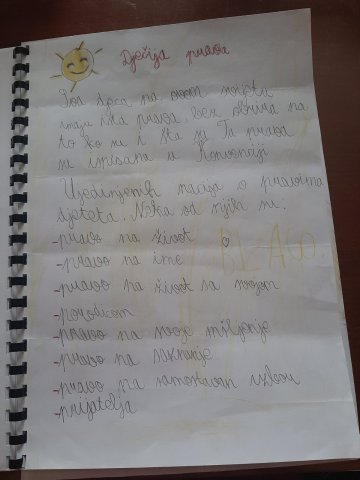 Dječija prava
Sva djeca na ovom svijetu
imaju ista prava, bez obzira na
to ko su i šta su. Ta prava
su upisana u Konvenciji
Ujedinjenih nacija o pravima
djeteta. Neka od njih su:
-pravo na život
-pravo na ime
-pravo na život sa svojom
-porodicom
-pravo na svoje mišljenje
-pravo na
-pravo na samostalan izbor
-prijatelja